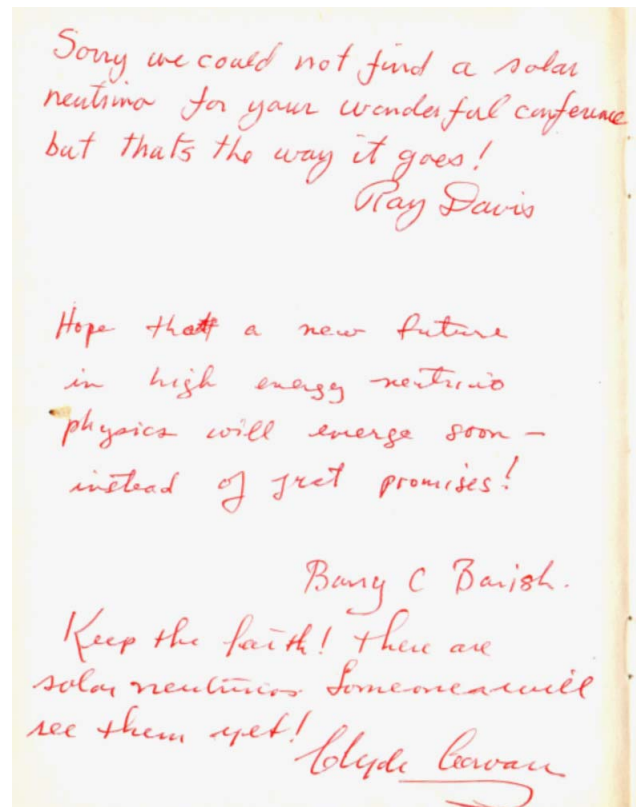 Sorry we could not find a solar
neutrino for your wonderful conference
but thats the way it goes!
Ray Davis
Hope that a new future
in high energy neutrino
physics will emerge soon –
instead of just promises!
Barry C Barish.
Keep the faith! There are
solar neutrinos. Someone will
see them yet!
Clyde Cowan